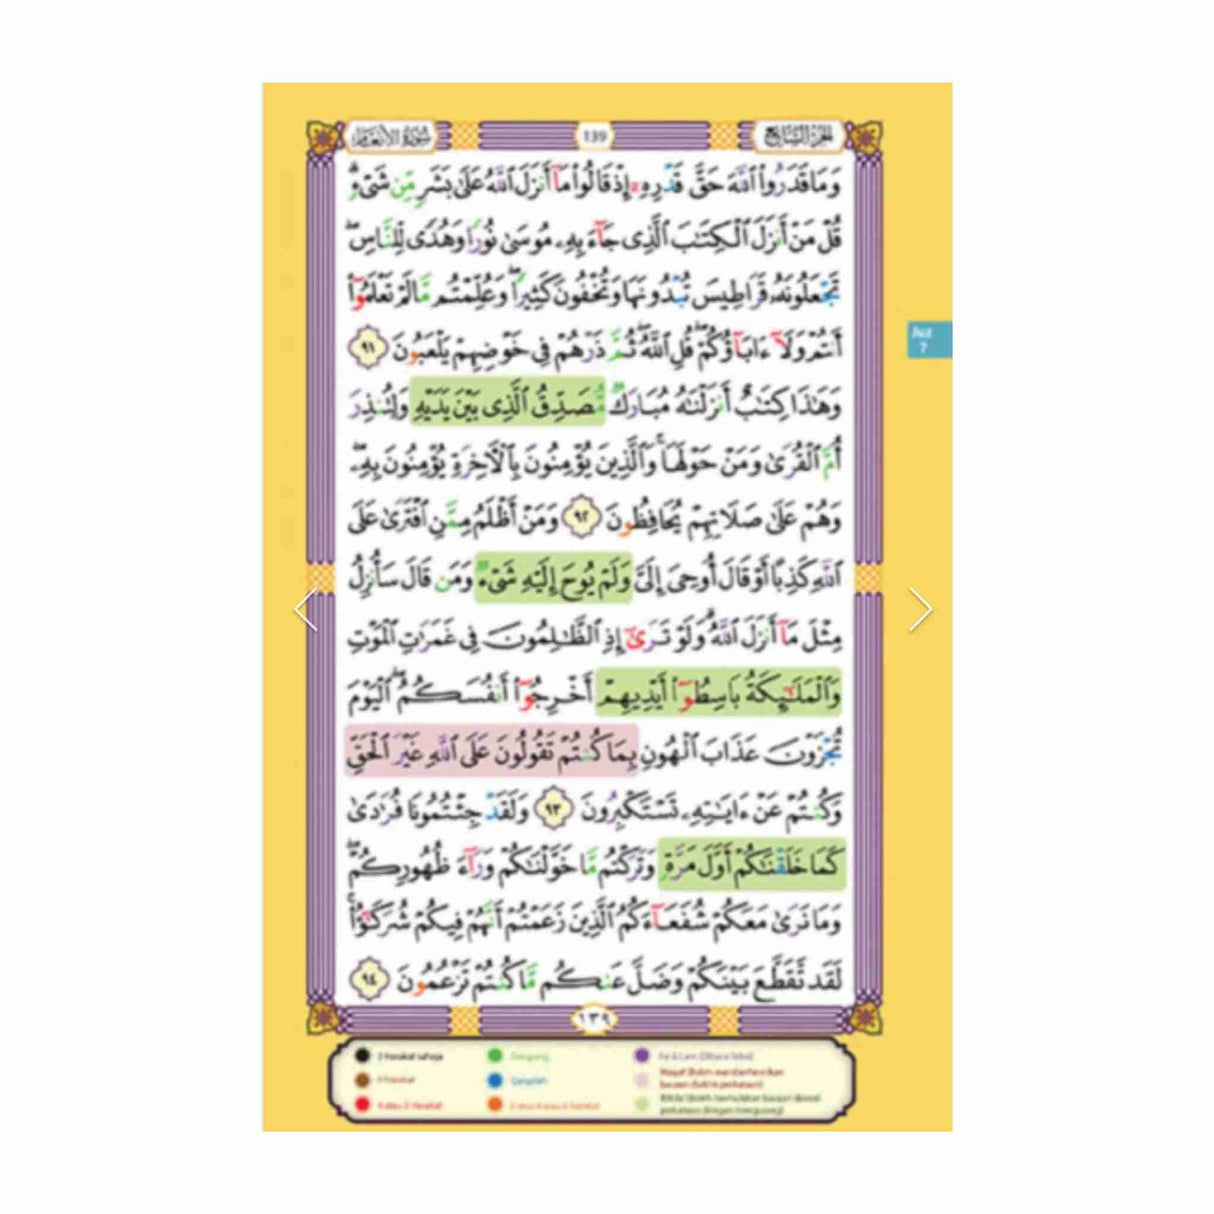 سورة الأنعام
139
الجزء السابع
وَمَا قَدَرُوا۟ ٱللَّهَ حَقَّ قَدْرِهِۦٓ إِذْ قَالُوا۟ مَآ أَنزَلَ ٱللَّهُ عَلَىٰ بَشَرٍ مِّن شَىْءٍ ۗ
قُلْ مَنْ أَنزَلَ ٱلْكِتَـٰبَ ٱلَّذِى جَآءَ بِهِۦ مُوسَىٰ نُورًا وَهُدًى لِّلنَّاسِ ۖ
تَجْعَلُونَهُۥ قَرَاطِيسَ تُبْدُونَهَا وَتُخْفُونَ كَثِيرًا ۖ وَعُلِّمْتُم مَّا لَمْ تَعْلَمُوٓا۟
أَنتُمْ وَلَآ ءَابَآؤُكُمْ ۖ قُلِ ٱللَّهُ ۖ ثُمَّ ذَرْهُمْ فِى خَوْضِهِمْ يَلْعَبُونَ ٩١
وَهَـٰذَا كِتَـٰبٌ أَنزَلْنَـٰهُ مُبَارَكٌ مُّصَدِّقُ ٱلَّذِى بَيْنَ يَدَيْهِ وَلِتُنذِرَ
أُمَّ ٱلْقُرَىٰ وَمَنْ حَوْلَهَا ۚ وَٱلَّذِينَ يُؤْمِنُونَ بِٱلْـَٔاخِرَةِ يُؤْمِنُونَ بِهِۦ ۖ
وَهُمْ عَلَىٰ صَلَاتِهِمْ يُحَافِظُونَ ٩٢ وَمَنْ أَظْلَمُ مِمَّنِ ٱفْتَرَىٰ عَلَى
ٱللَّهِ كَذِبًا أَوْ قَالَ أُوحِىَ إِلَىَّ وَلَمْ يُوحَ إِلَيْهِ شَىْءٌ وَمَن قَالَ سَأُنزِلُ
مِثْلَ مَآ أَنزَلَ ٱللَّهُ ۗ وَلَوْ تَرَىٰٓ إِذِ ٱلظَّـٰلِمُونَ فِى غَمَرَٰتِ ٱلْمَوْتِ
وَٱلْمَلَـٰٓئِكَةُ بَاسِطُوٓا۟ أَيْدِيهِمْ أَخْرِجُوٓا۟ أَنفُسَكُمُ ۖ ٱلْيَوْمَ
تُجْزَوْنَ عَذَابَ ٱلْهُونِ بِمَا كُنتُمْ تَقُولُونَ عَلَى ٱللَّهِ غَيْرَ ٱلْحَقِّ
وَكُنتُمْ عَنْ ءَايَـٰتِهِۦ تَسْتَكْبِرُونَ ٩٣ وَلَقَدْ جِئْتُمُونَا فُرَٰدَىٰ
كَمَا خَلَقْنَـٰكُمْ أَوَّلَ مَرَّةٍ وَتَرَكْتُم مَّا خَوَّلْنَـٰكُمْ وَرَآءَ ظُهُورِكُمْ ۖ
وَمَا نَرَىٰ مَعَكُمْ شُفَعَآءَكُمُ ٱلَّذِينَ زَعَمْتُمْ أَنَّهُمْ فِيكُمْ شُرَكَـٰٓؤُا۟ ۚ
لَقَد تَّقَطَّعَ بَيْنَكُمْ وَضَلَّ عَنكُم مَّا كُنتُمْ تَزْعُمُونَ ٩٤
Juz
7
١٣٩
2 Harakat sahaja
Dengung
6 Harakat
Qalqalah
4 atau 5 Harakat
2 atau 4 atau 6 Harakat